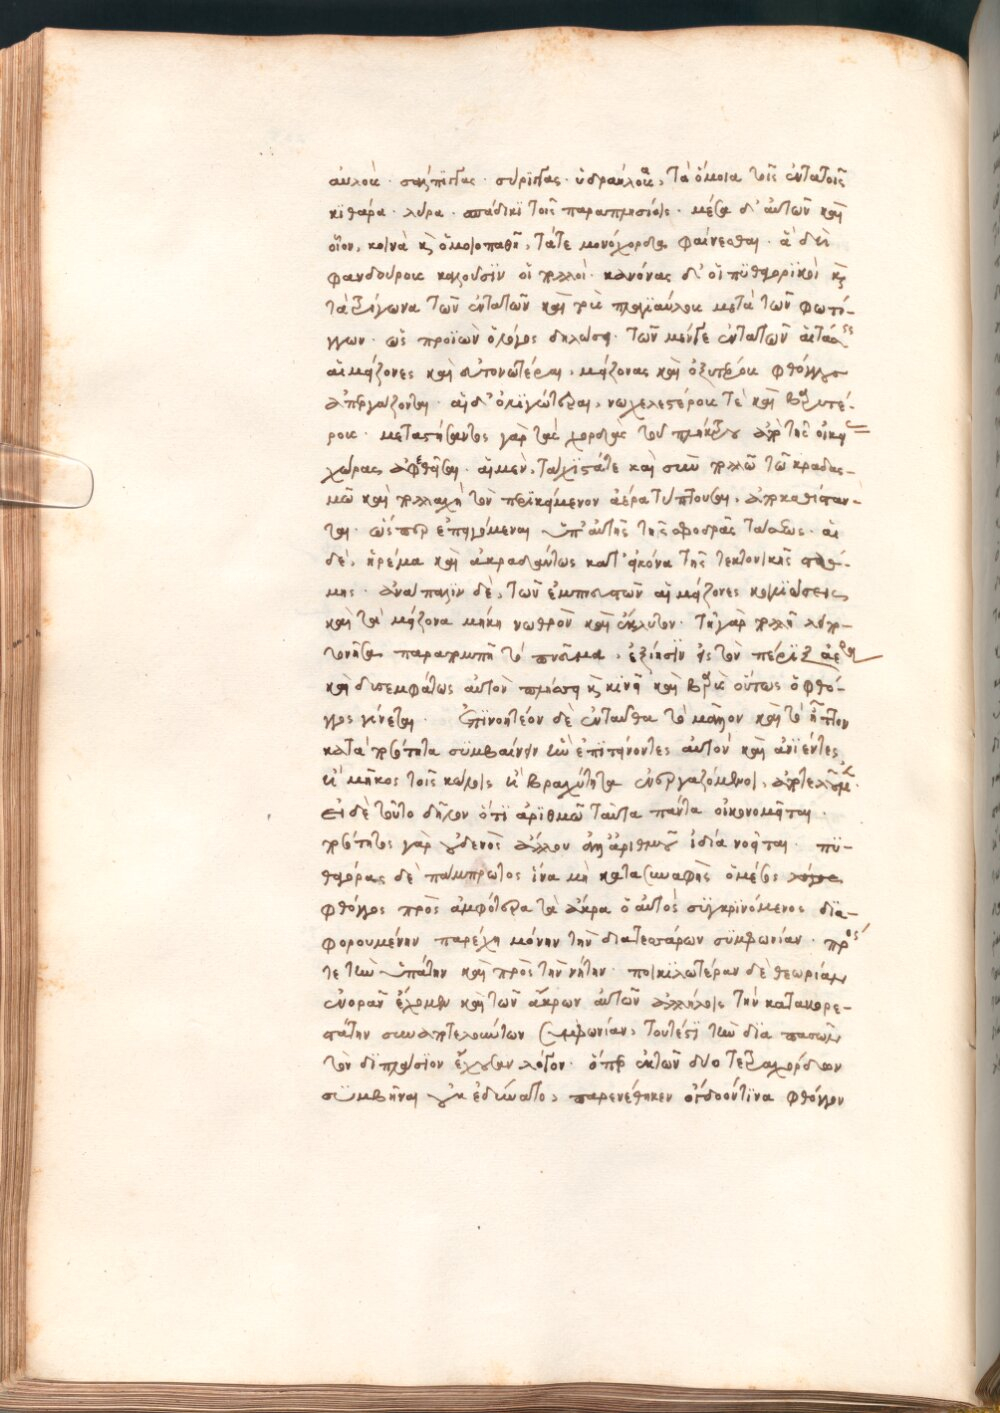 αὐλοῖς · σάλπϊγξας · σύριγξας · ὑδραύλοις, τὰ ὅμοια τοῖς ἐντατοῖς
κϊθάρα · λύρα · σπάδικϊ τοῖς παραπλησίοις · μέσα δ' αὐτῶν καὶ
οἷον, κοινὰ κ̀ ὁμοιοπαθῆ, τάτε μονόχορδα φαίνεσθαι · ἃ δὴ
φανδούροις καλοῦσϊν οἱ πολλοὶ · κανόνας δ' οἱ πϋθαγορϊκοὶ κ̀
τὰ τρίγωνα τῶν ἐντατῶν καὶ τοὺς πλαγϊαύλους μετὰ τῶν φωτί-
γγων · ὡς προϊὼν ὁ λόγος δηλώσει · τῶν μέντε ἐντατῶν αἱ τάσεις
αἱ μείζονες καὶ εὐτονώτεραι, μείζονας καὶ ὀξυτέρους φθόγγους
ἀπεργάζονται · αἱ δ' ὀλιγώτεραι, νωχελεστέρους τὲ καὶ βαρυτέ-
ρους · μεταστήσαντος γὰρ τὰς χορδὰς τοῦ πλήκτρου ἀπὸ τῆς οἰκεί
χώρας ἀφεθεῖσαι · αἱ μὲν, ταχϊστάτε καὶ σὺν πολλῶ τῶ κραδας-
μῶ καὶ πολλαχῆ τὸν περϊκείμενον ἀέρα τύπτουσαι, ἀποκαθίσταν-
ται · ὥσπερ ἐπειγόμεναι ὑπ' αὐτῆς τῆς σφοδρᾶς τάσεως · αἱ
δὲ, ἠρέμα καὶ ἀκραδάντως κατ' εἰκόνα τῆς τεκτονικῆς σταθ-
μης · ἀνάπαλϊν δὲ, τῶν ἐμπνευστῶν αἱ μείζονες κοιλϊώσεις
καὶ τὰ μείζονα μήκη νωθρὸν καὶ ἔκλυτον · τῆ γὰρ πολλῆ
παρατροπῆ τὸ πνεῦμα, ἐξίησϊν εἰς τὸν πέρϊξ ἀέρα
καὶ δυσεμφάτως αὐτὸν πλήσσει κ̀ κϊνεῖ καὶ βαρὺς οὕτως ὁ φθό-
γγος γίνεται · ἐπϊνοητέον δὲ ἐνταῦθα τὸ μᾶλλον καὶ τὸ ἧττον
κατὰ ποσότητα συμβαίνειν ἐπϊτείνοντες αὐτὸν καὶ ἀνϊέντες,
ἢ μῆκος τοῖς κώλοις ἢ βραχύτητα ἐνεργαζόμενοι, ἀποτελοῦμεν ·
εἰ δὲ τοῦτο δῆλον ὅτϊ ἀρϊθμῶ ταῦτα πάντα οἰκονομεῖται ·
ποσότητος γὰρ οὐδενὸς ἄλλου ἢ ἀριθμοῦ ἰδία νοεῖται · πϋ-
θαγόρας δὲ πάμπρωτος ἵνα μὴ κατα συναφὴς ὁ μέσος
φθόγγος πρὸς ἀμφότερα τὰ ἄκρα ὁ αὐτὸς συγκρϊνόμενος δϊα-
φορουμένην παρέχη μόνην τὴν διατεσσάρων συμφωνίαν · πρός
τε τὴν ὑπάτην καὶ πρὸς τὴν νήτην · ποικιλωτέραν δὲ θεωρίαν
ἐνορᾶν ἔχωμεν καὶ τῶν ἄκρων αὐτῶν ἀλλήλοις τὴν κατακορε-
στάτην συναποτελούντων συμφωνίαν, τουτέστϊ τὴν δϊα πασῶν
τὸν δϊπλάσϊον ἔχουσαν λόγον · ὅπερ ἐκ τῶν δύο τετραχόρδων
συμβῆναι οὐκ ἐδύνατο, παρενέθηκεν ὄγδοόντϊνα φθόγγον